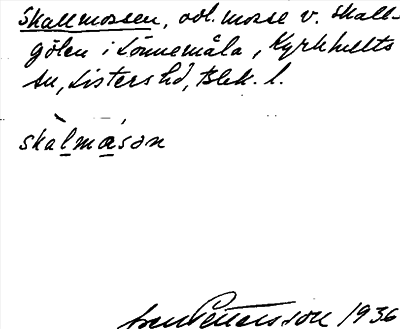 Skallmossen, odl. mosse v. Skall-
gölen i Lönnemåla, Kyrkhults
sn, Listers hd, Blek. l.
skàlmásən
Sven Pettersson 1936